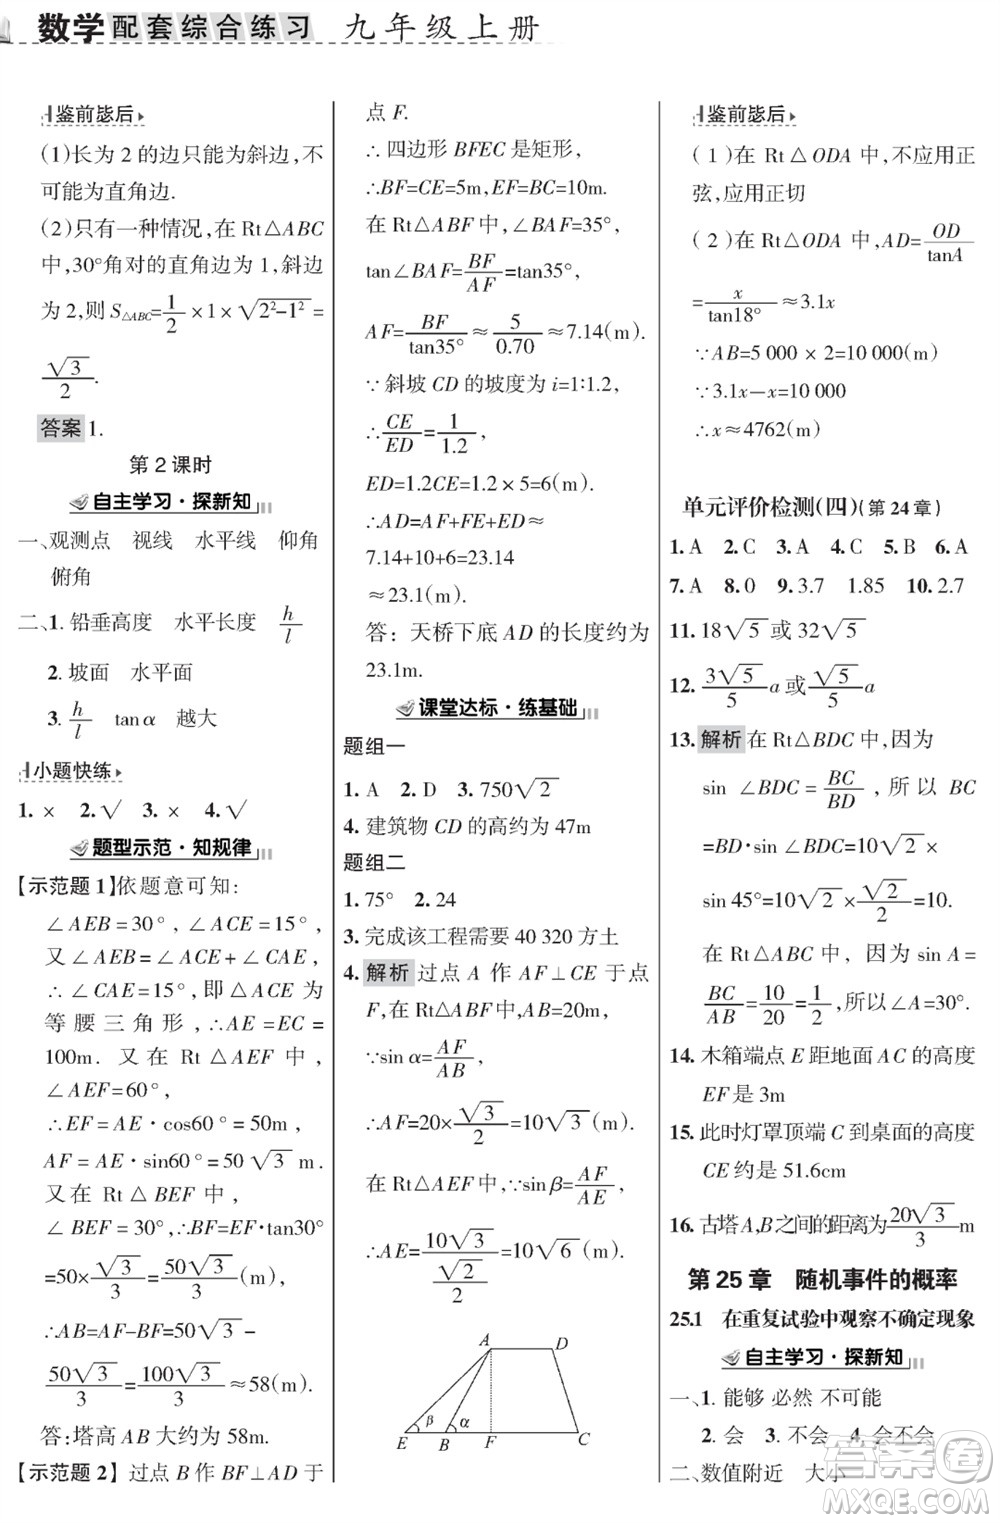 数学 配套综合练习 九年级上册
鉴前毖后
(1)长为 2 的边只能为斜边,不
可能为直角边.
(2)只有一种情况,在 Rt△ABC
中,30°角对的直角边为 1,斜边
为 2,则 S△ABC=1/2×1×√(2²-1²)=
√3/2.
答案 1.
第 2 课时
自主学习·探新知
一、观测点 视线 水平线 仰角
俯角
二、1. 铅垂高度 水平长度 h/l
2. 坡面 水平面
3. h/l tanα 越大
小题快练
1. × 2. √ 3. × 4. √
题型示范·知规律
【示范题 1】依题意可知:
∠AEB=30°,∠ACE=15°,
又∠AEB=∠ACE+∠CAE,
∴∠CAE=15°,即△ACE 为
等腰三角形,∴AE=EC=
100m. 又在 Rt△AEF 中,
∠AEF=60°,
∴EF=AE·cos60°=50m,
AF=AE·sin60°=50√3m.
又在 Rt△BEF 中,
∠BEF=30°,∴BF=EF·tan30°
=50×√3/3=50√3/3(m),
∴AB=AF-BF=50√3-
50√3/3=100√3/3≈58(m).
答:塔高 AB 大约为 58m.
【示范题 2】过点 B 作 BF⊥AD 于
点 F.
∴四边形 BFEC 是矩形,
∴BF=CE=5m,EF=BC=10m.
在 Rt△ABF 中,∠BAF=35°,
tan∠BAF=BF/AF=tan35°,
AF=BF/tan35°≈5/0.70≈7.14(m).
∵斜坡 CD 的坡度为 i=1:1.2,
∴CE/ED=1/1.2,
ED=1.2CE=1.2×5=6(m).
∴AD=AF+FE+ED≈
7.14+10+6=23.14
≈23.1(m).
答:天桥下底 AD 的长度约为
23.1m.
课堂达标·练基础
题组一
1. A 2. D 3. 750√2
4. 建筑物 CD 的高约为 47m
题组二
1. 75° 2. 24
3. 完成该工程需要 40 320 方土
4. 解析 过点 A 作 AF⊥CE 于点
F,在 Rt△ABF 中,AB=20m,
∵sin α=AF/AB,
∴AF=20×√3/2=10√3(m),
在 Rt△AEF 中,∵sinβ=AF/AE,
∴AE=10√3/(√2/2)=10√6(m).
A D
β α
E B F C
鉴前毖后
(1)在 Rt△ODA 中,不应用正
弦,应用正切
(2)在 Rt△ODA 中,AD=OD/tanA
=x/tan18°≈3.1x
∵AB=5 000×2=10 000(m)
∵3.1x—x=10 000
∴x≈4762(m)
单元评价检测(四)(第 24 章)
1. A 2. C 3. A 4. C 5. B 6. A
7. A 8. 0 9. 3.7 1.85 10. 2.7
11. 18√5 或 32√5
12. 3√5/5 a 或 √5/5 a
13. 解析 在 Rt△BDC 中,因为
sin ∠BDC=BC/BD,所以 BC
=BD·sin ∠BDC=10√2×
sin 45°=10√2×√2/2=10.
在 Rt△ABC 中,因为 sin A=
BC/AB=10/20=1/2,所以∠A=30°.
14. 木箱端点 E 距地面 AC 的高度
EF 是 3m
15. 此时灯罩顶端 C 到桌面的高度
CE 约是 51.6cm
16. 古塔 A,B 之间的距离为20√3/3m
第 25 章 随机事件的概率
25.1 在重复试验中观察不确定现象
自主学习·探新知
一、1. 能够 必然 不可能
2. 会 3. 不会 4. 会不会
二、数值附近 大小
答案圈
MXQE.COM